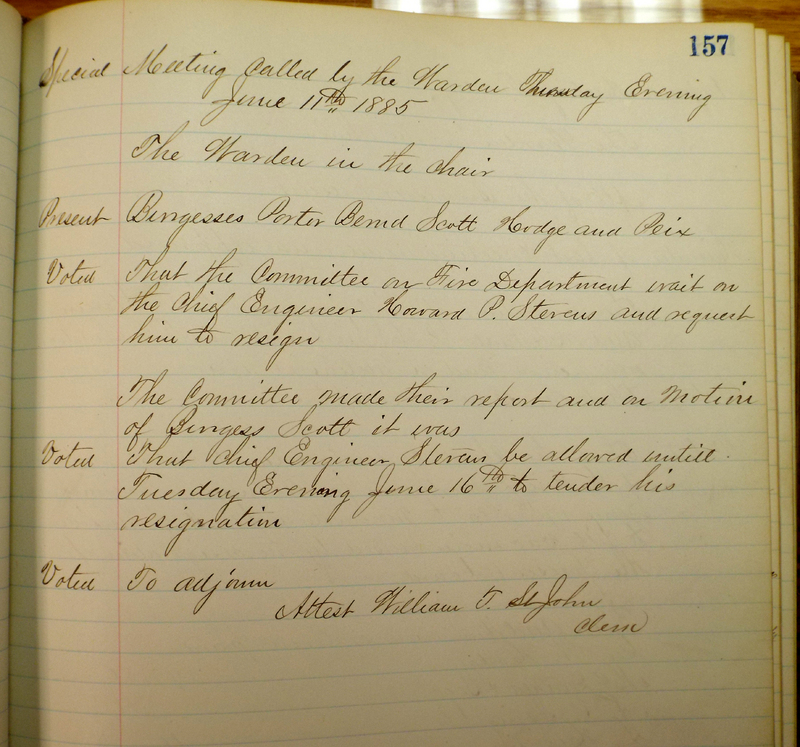 157
Special Meeting Called by the Warden Thursday Evening
June 11th 1885
The Warden in the chair
Present Burgesses Porter Bernd Scott Hodge and Peix
Voted That the Committee on Fire Department wait on
the Chief Engineer Howard P. Stevens and request
him to resign
The Committee made their report and on Motion
of Burgess Scott it was
Voted That Chief Engineer Stevens be allowed untill
Tuesday Evening June 16th to tender his
resignation
Voted To adjourn
Attest William T. St John
Clerk